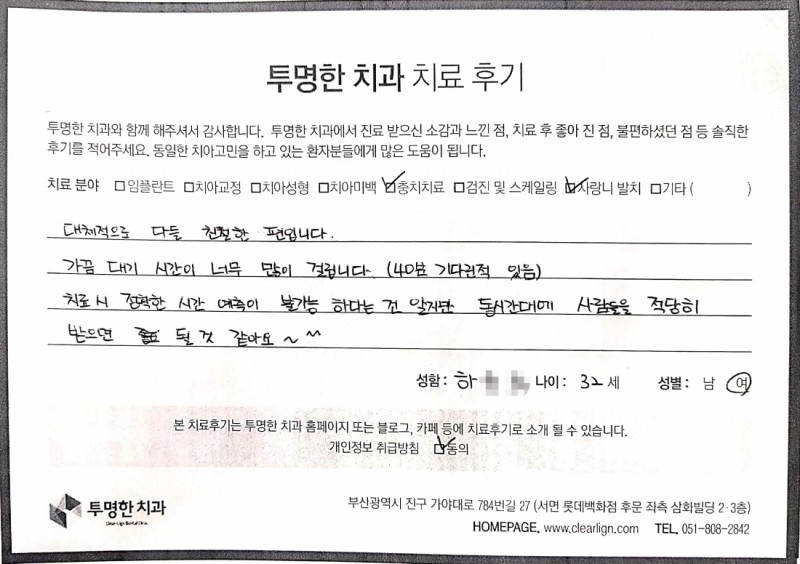 투명한 치과 치료 후기
투명한 치과와 함께 해주셔서 감사합니다. 투명한 치과에서 진료 받으신 소감과 느낀 점, 치료 후 좋아 진 점, 불편하셨던 점 등 솔직한
후기를 적어주세요. 동일한 치아고민을 하고 있는 환자분들에게 많은 도움이 됩니다.
치료 분야 □임플란트 □치아교정 □치아성형 □치아미백 ☑충치치료 □검진 및 스케일링 ☑사랑니 발치 □기타 ( )
대체적으로 다들 친절한 편입니다.
가끔 대기 시간이 너무 많이 걸립니다. (40분 기다린적 있음)
치료 시 정확한 시간 예측이 불가능 하다는 건 알지만 동시간대에 사람들을 적당히
받으면 될 것 같아요~ ^^
성함: 하 나이: 32 세 성별: 남 여
본 치료후기는 투명한 치과 홈페이지 또는 블로그, 카페 등에 치료후기로 소개 될 수 있습니다.
개인정보 취급방침 ☑동의
투명한 치과
Clear-Lign Dental Clinic
부산광역시 진구 가야대로 784번길 27 (서면 롯데백화점 후문 좌측 삼화빌딩 2·3층)
HOMEPAGE. www.clearlign.com TEL. 051-808-2842